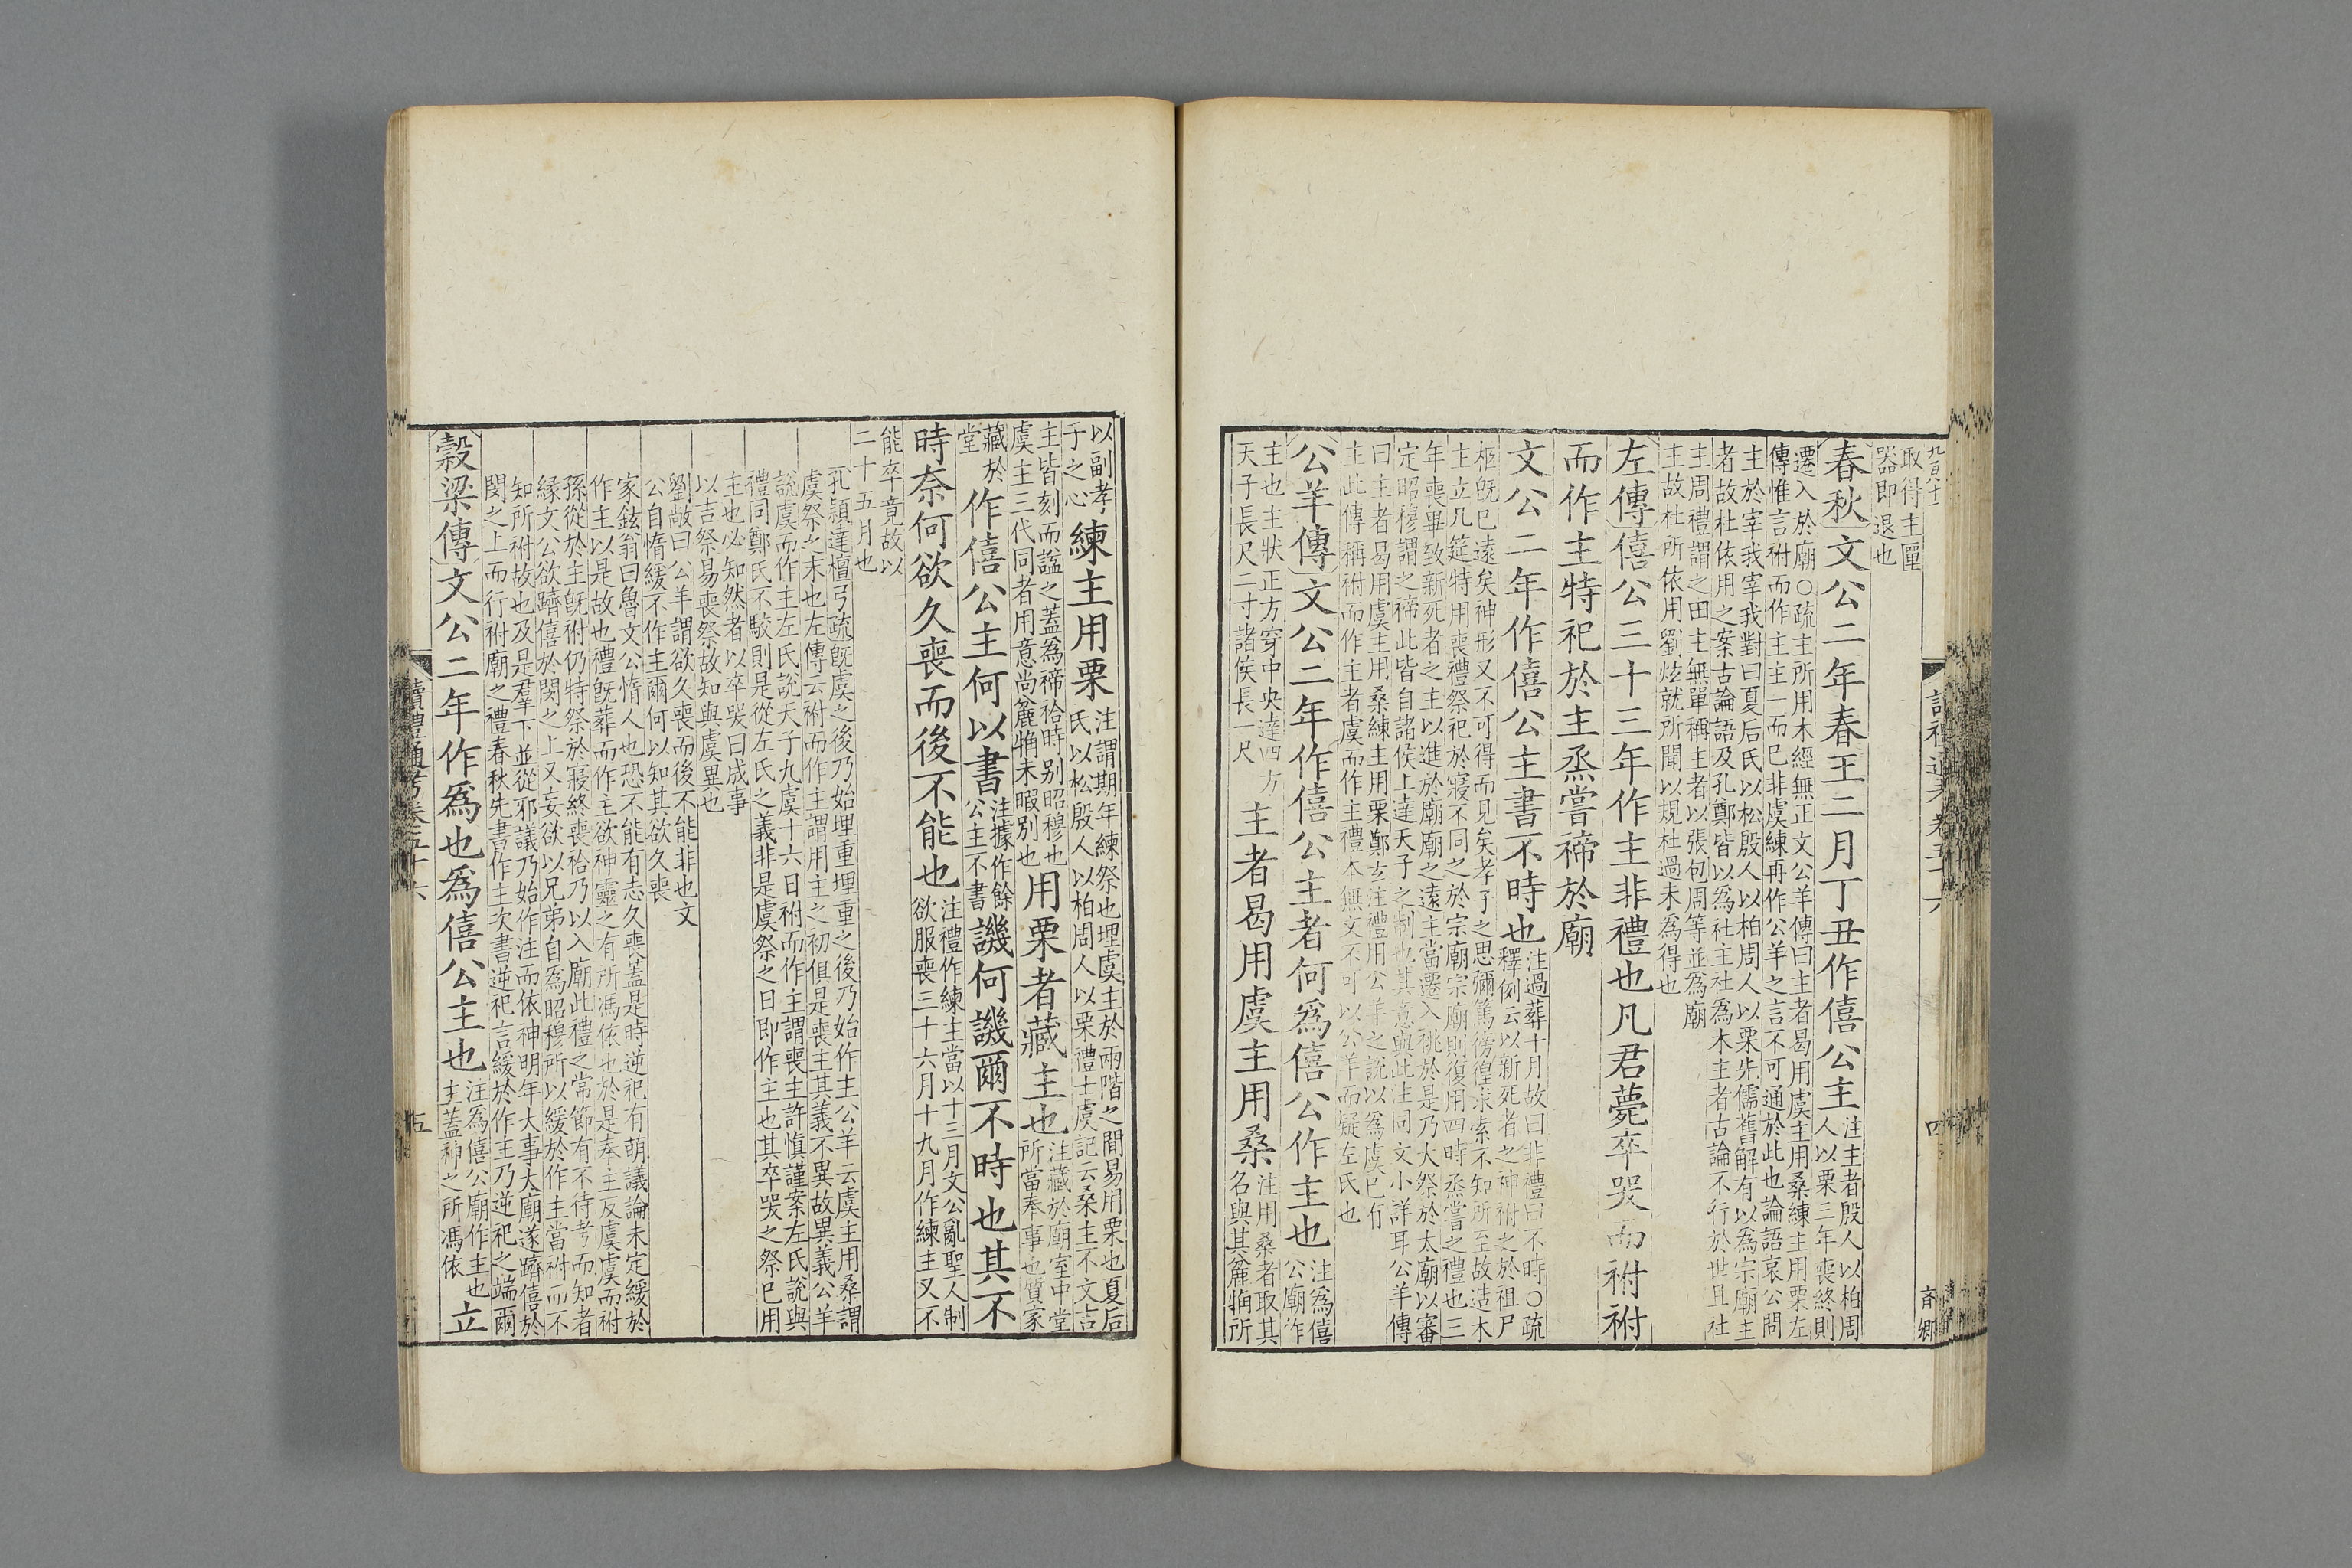 取得主匰
器即退也
春秋文公二年春王二月丁丑作僖公主
注主者殷人以柏周
人以栗三年喪終則
遷入於廟○疏主所用木經無正文公羊傳曰主者曷用虞主用桑練主用栗左
傳惟言祔而作主主一而已非虞練再作公羊之言不可通於此也論語哀公問
主於宰我宰我對曰夏后氏以松殷人以柏周人以栗先儒舊解有以為宗廟主
者故杜依用之案古論語及孔鄭皆以為社主社為木主者古論不行於世且社
主周禮謂之田主無單稱主者以張包周等並為廟
主故杜所依用劉炫就所聞以規杜過未為得也
左傳僖公三十三年作主非禮也凡君薨卒哭而祔祔
而作主特祀於主烝嘗禘於廟
文公二年作僖公主書不時也
注過葬十月故曰非禮曰不時○疏
釋例云以新死者之神祔之於祖尸
柩旣已遠矣神形又不可得而見矣孝子之思彌篤徬徨求索不知所至故造木
主立几筵特用喪禮祭祀於寢不同之於宗廟宗廟則復用四時烝嘗之禮也三
年喪畢致新死者之主以進於廟廟之遠主當遷入祧於是乃大祭於太廟以審
定昭穆謂之禘此皆自諸侯上達天子之制也其意與此注同文小詳耳公羊傳
曰主者曷用虞主用桑練主用栗鄭玄注禮用公羊之說以為虞已有
主此傳稱祔而作主者虞而作主禮本無文不可以公羊而疑左氏也
公羊傳文公二年作僖公主者何爲僖公作主也
注為僖
公廟作
主也主狀正方穿中央達四方
天子長尺二寸諸侯長一尺
主者曷用虞主用桑
注用桑者取其
名與其麄觕所
以副孝
子之心
練主用栗
注謂期年練祭也埋虞主於兩階之間易用栗也夏后
氏以松殷人以柏周人以栗禮士虞記云桑主不文吉
主皆刻而諡之蓋為禘祫時別昭穆也
虞主三代同者用意尚麄觕未暇別也
用栗者藏主也
注藏於廟室中堂
所當奉事也質家
藏於
堂
作僖公主何以書
注據作餘
公主不書
譏何譏爾不時也其不
時奈何欲久喪而後不能也
注禮作練主當以十三月文公亂聖人制
欲服喪三十六月十九月作練主又不
能卒竟故以
二十五月也
孔頴達檀弓疏旣虞之後乃始埋重埋重之後乃始作主公羊云虞主用桑謂
虞祭之末也左傳云祔而作主謂用主之初俱是喪主其義不異故異義公羊
說虞而作主左氏說天子九虞十六日祔而作主謂喪主許慎謹案左氏說與
禮同鄭氏不駮則是從左氏之義非是虞祭之日即作主也其卒哭之祭已用
主也必知然者以卒哭曰成事
以吉祭易喪祭故知與虞異也
劉敞曰公羊謂欲久喪而後不能非也文
公自惰緩不作主爾何以知其欲久喪
家鉉翁曰魯文公惰人也恐不能有志久喪蓋是時逆祀有萌議論未定緩於
作主以是故也禮旣葬而作主欲神靈之有所馮依也於是奉主反虞虞而祔
孫從於主旣祔仍特祭於寢終喪祫乃以入廟此禮之常節有不待考而知者
縁文公欲躋僖於閔之上又妄欲以兄弟自為昭穆所以緩於作主當祔而不
知所祔故也及是羣下並從邪議乃始作注而依神明年大事大廟遂躋僖於
閔之上而行祔廟之禮春秋先書作主次書逆祀言緩於作主乃逆祀之端爾
穀梁傳文公二年作爲也爲僖公主也
注為僖公廟作主也
主蓋神之所馮依
立
讀禮通考卷五十六
五